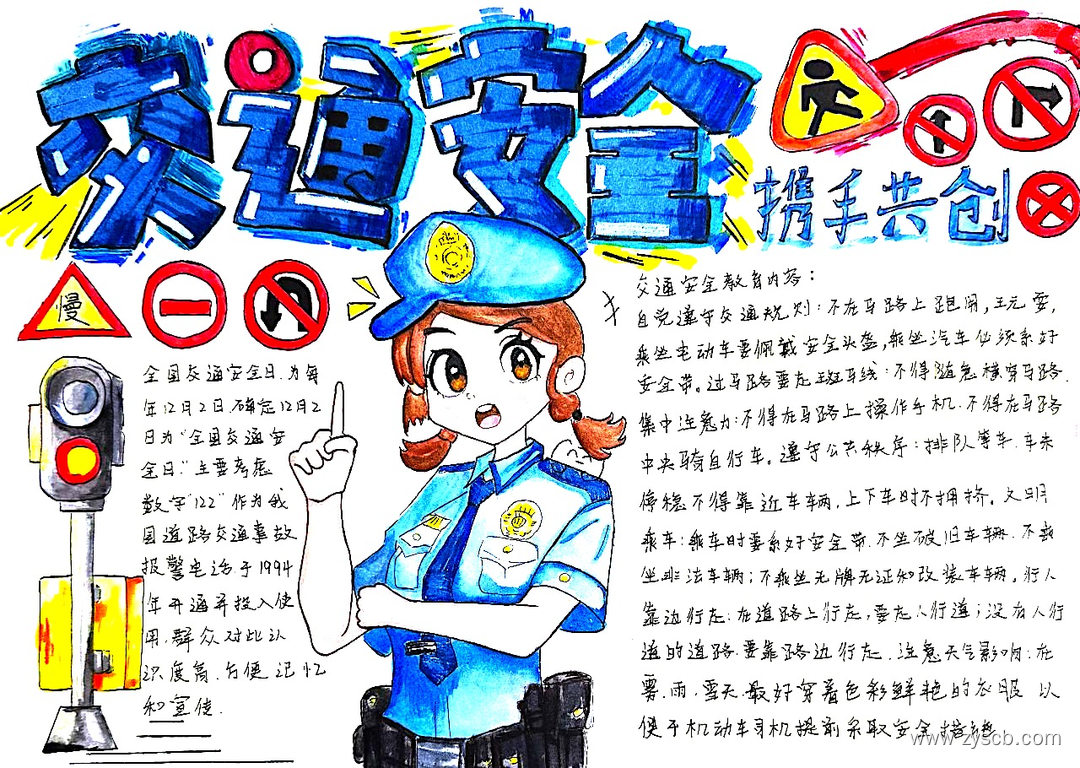 交通安全
携手共创
慢
全国交通安全日.为每
年12月2日确定12月2
日为“全国交通安
全日”主要考虑
数字“122”作为我
国道路交通事故
报警电话于1994
年开通并投入使
用.群众对此认
识度高.方便记忆
和宣传.
交通安全教育内容:
自觉遵守交通规则:不在马路上跑闹,玩耍,
乘坐电动车要佩戴安全头盔,乘坐汽车必须系好
安全带。过马路要走斑马线:不得随意横穿马路.
集中注意力:不得在马路上操作手机.不得在马路
中央骑自行车。遵守公共秩序:排队等车.车未
停稳不得靠近车车辆,上下车时不拥挤。文明
乘车:乘车时要系好安全带.不坐破旧车辆.不乘
坐非法车辆;不乘坐无牌无证和改装车辆。行人
靠边行走:在道路上行走,要走人行道;没有人行
道的道路.要靠路边行走.注意天气影响:在
雾.雨.雪天.最好穿着色彩鲜艳的衣服.以
便于机动车司机提前采取安全措施
www.zyscb.com